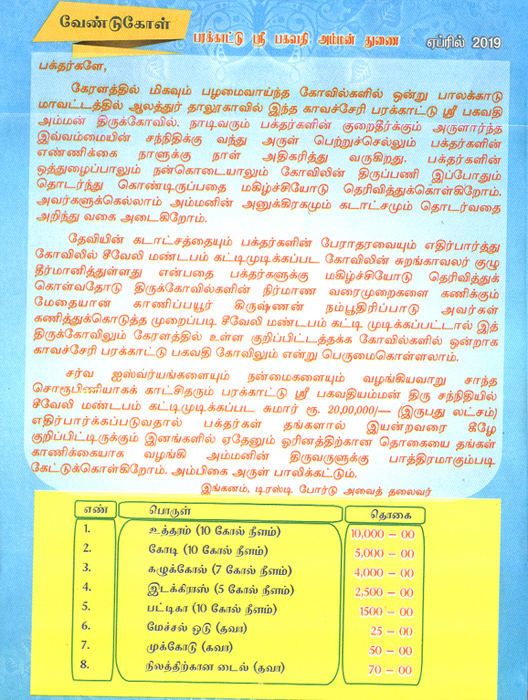 வேண்டுகோள்
பரக்காட்டு ஸ்ரீ பகவதி அம்மன் துணை
ஏப்ரில் 2019
பக்தர்களே,
கேரளத்தில் மிகவும் பழமைவாய்ந்த கோவில்களில் ஒன்று பாலக்காடு
மாவட்டத்தில் ஆலத்துர் தாலூகாவில் இந்த காவச்சேரி பரக்காட்டு ஸ்ரீ பகவதி
அம்மன் திருக்கோவில். நாடிவரும் பக்தர்களின் குறைதீர்க்கும் அருளார்ந்த
இவ்வம்மையின் சந்நிதிக்கு வந்து அருள் பெற்றுச்செல்லும் பக்தர்களின்
எண்ணிக்கை நாளுக்கு நாள் அதிகரித்து வருகிறது. பக்தர்களின்
ஒத்துழைப்பாலும் நன்கொடையாலும் கோவிலின் திருப்பணி இப்போதும்
தொடர்ந்து கொண்டிருப்பதை மகிழ்ச்சியோடு தெரிவித்துக்கொள்கிறோம்.
அவர்களுக்கெல்லாம் அம்மனின் அனுக்கிரகமும் கடாட்சமும் தொடர்வதை
அறிந்து வகை அடைகிறோம்.
தேவியின் கடாட்சத்தையும் பக்தர்களின் பேராதரவையும் எதிர்பார்த்து
கோவிலில் சீவேலி மண்டபம் கட்டிமுடிக்கப்பட கோவிலின் சுறங்காவலர் குழு
தீர்மானித்துள்ளது என்பதை பக்தர்களுக்கு மகிழ்ச்சியோடு தெரிவித்துக்
கொள்வதோடு திருக்கோவில்களின் நிர்மாண வரைமுறைகளை கணிக்கும்
மேதையான காணிப்பயூர் கிருஷ்ணன் நம்பூதிரிப்பாடு அவர்கள்
கணித்துக்கொடுத்த முறைப்படி சீவேலி மண்டபம் கட்டி முடிக்கப்பட்டால் இத்
திருக்கோவிலும் கேரளத்தில் உள்ள குறிப்பிட்டத்தக்க கோவில்களில் ஒன்றாக
காவச்சேரி பரக்காட்டு பகவதி கோவிலும் என்று பெருமைகொள்ளலாம்.
சர்வ ஐஸ்வர்யங்களையும் நன்மைகளையும் வழங்கியவாறு சாந்த
சொரூபிணியாகக் காட்சிதரும் பரக்காட்டு ஸ்ரீ பகவதியம்மன் திரு சந்நிதியில்
சீவேலி மண்டபம் கட்டிமுடிக்கப்பட சுமார் ரூ. 20,00,000/— (இருபது லட்சம்)
எதிர்பார்க்கப்படுவதால் பக்தர்கள் தங்களால் இயன்றவரை கீழே
குறிப்பிட்டிருக்கும் இனங்களில் ஏதேனும் ஓரினத்திற்கான தொகையை தங்கள்
காணிக்கையாக வழங்கி அம்மனின் திருவருளுக்கு பாத்திரமாகும்படி
கேட்டுக்கொள்கிறோம். அம்பிகை அருள் பாலிக்கட்டும்.
இங்கனம், டிரஸ்டி போர்டு அவைத் தலைவர்
எண் பொருள் தொகை
1. உத்தரம் (10 கோல் நீளம்) 10,000 – 00
2. கோடி (10 கோல் நீளம்) 5,000 – 00
3. கழுக்கோல் (7 கோல் நீளம்) 4,000 – 00
4. இடக்கிராஸ் (5 கோல் நீளம்) 2,500 – 00
5. பட்டிகா (10 கோல் நீளம்) 1500 – 00
6. மேச்சல் ஓடு (தவா) 25 – 00
7. முக்கோடு (கவா) 50 – 00
8. நிலத்திற்கான டைல் (தவா) 70 – 00